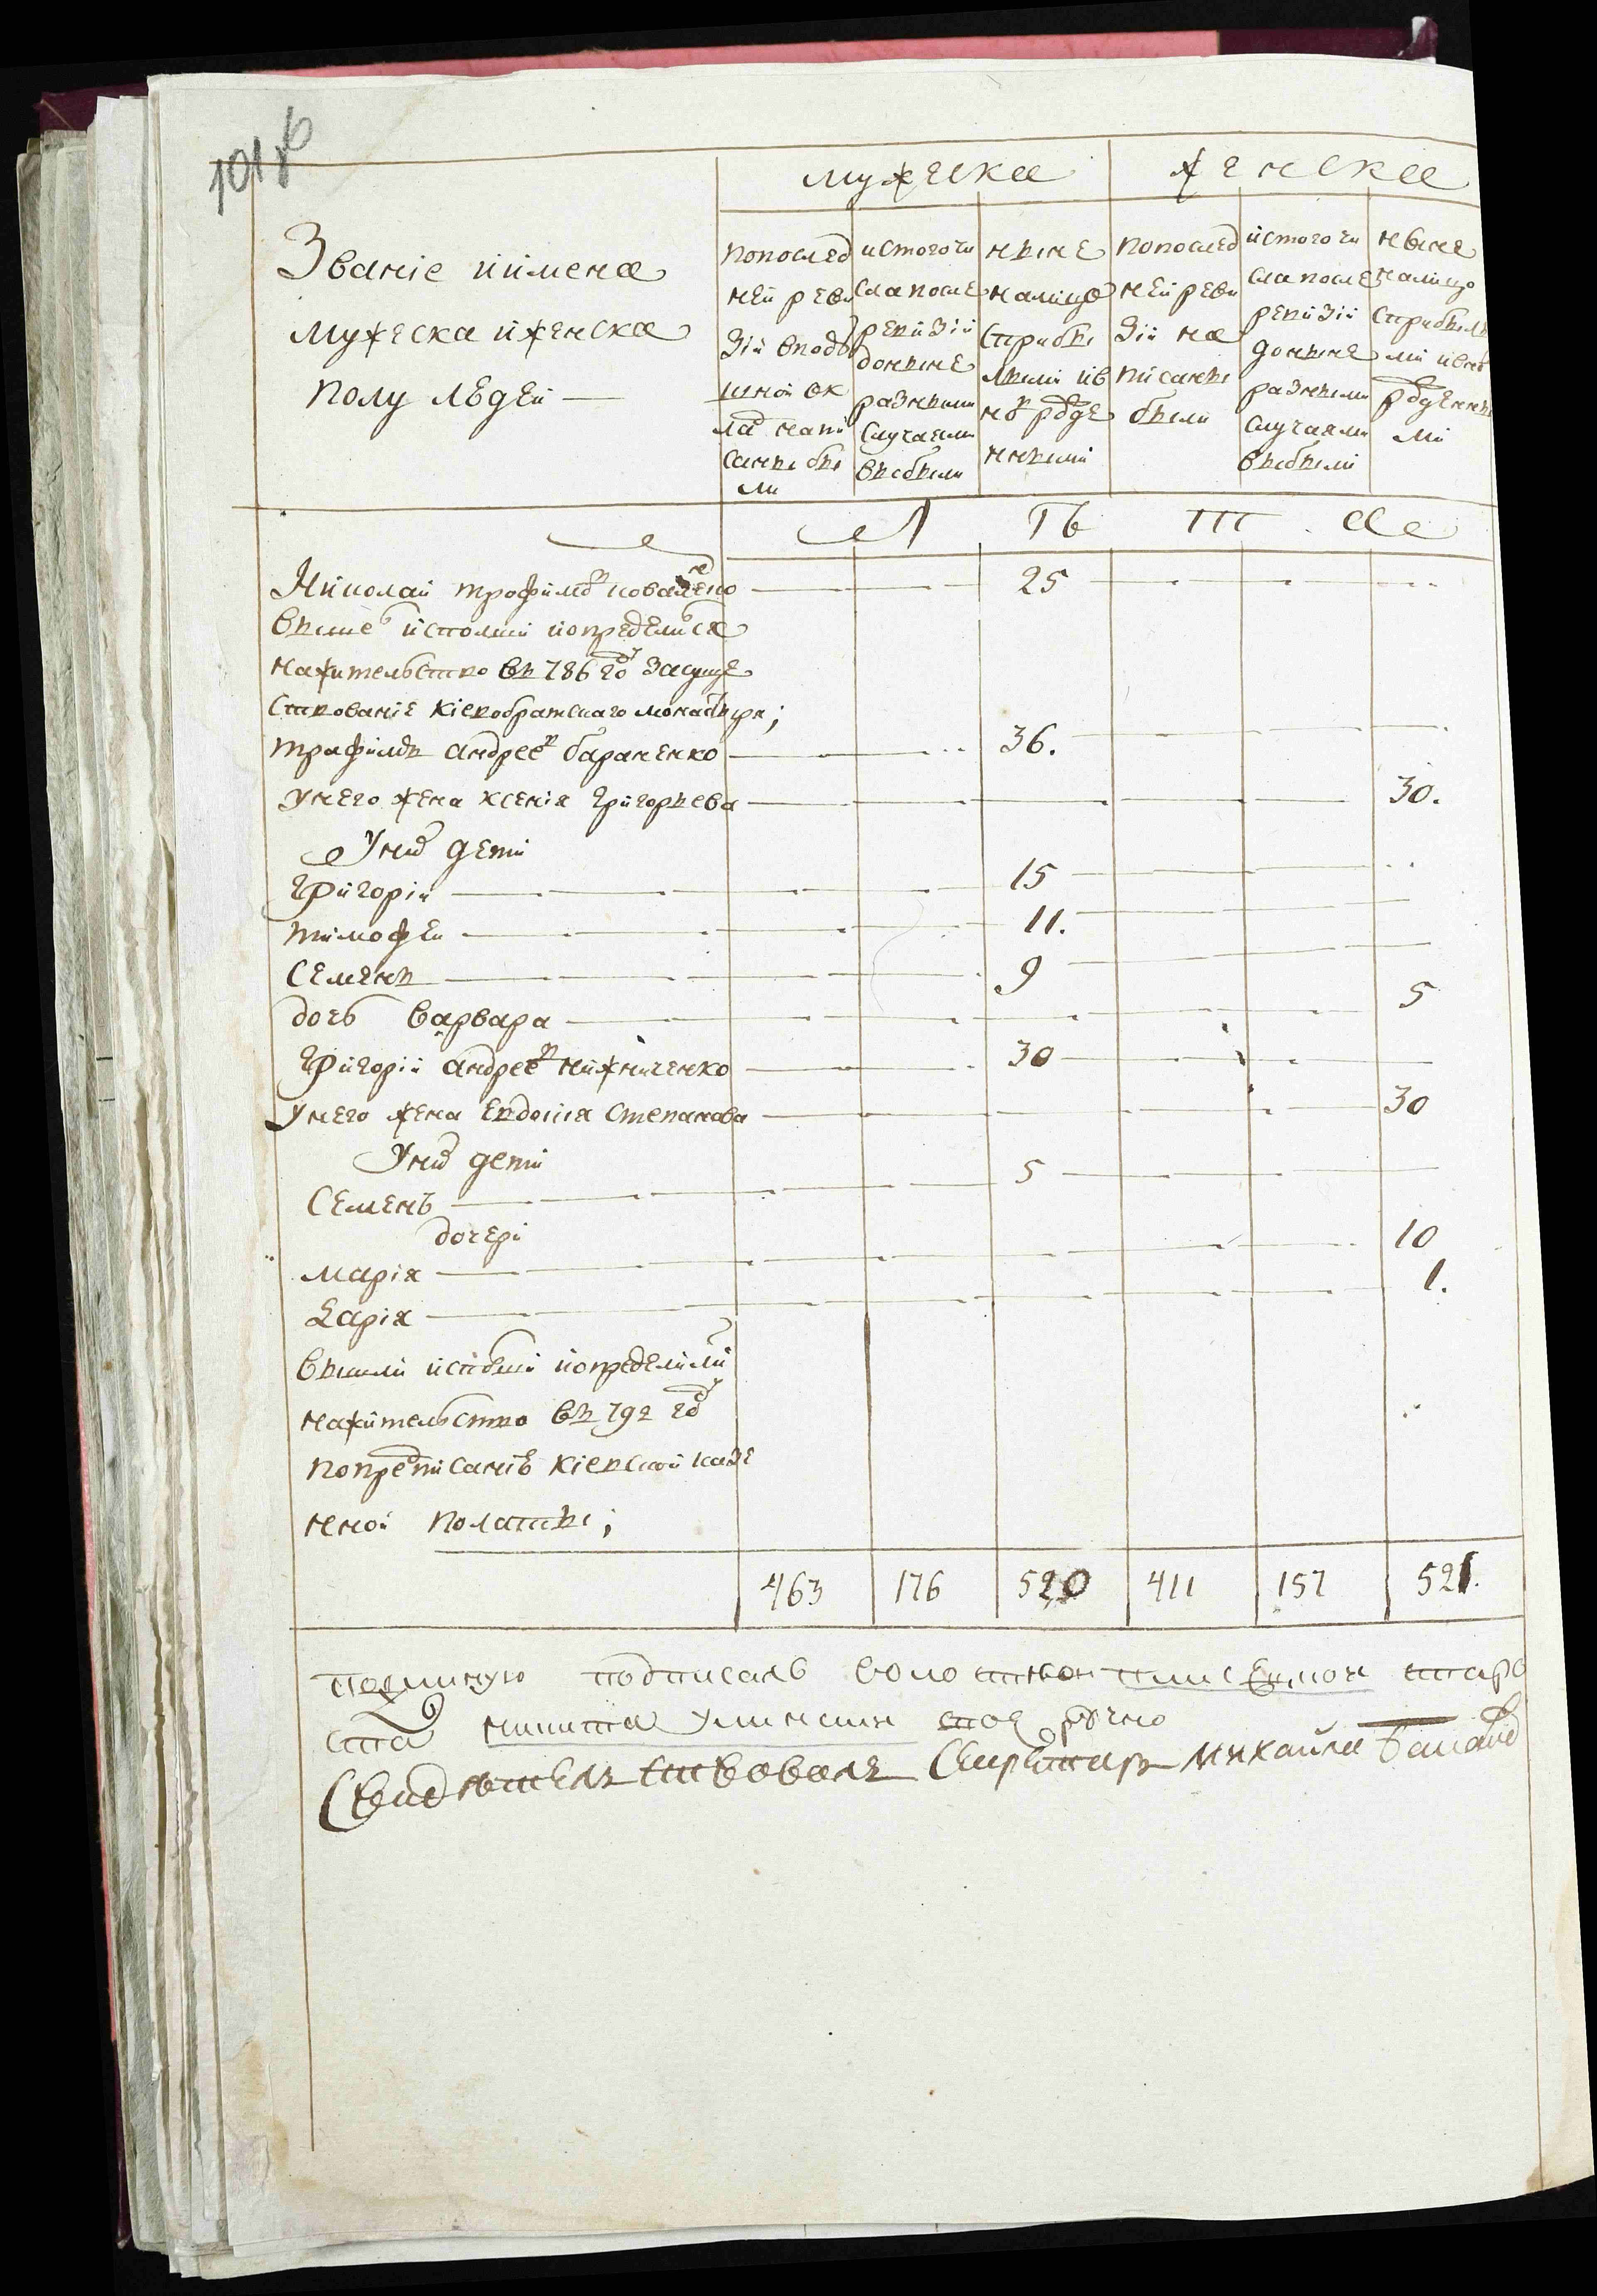 101 об
мужеска женска
Званіе иимена
мужеска иженска
полу лѣдей
попослед
ней реви
зіи вподу
шной ок
лад напи
санъ бы
ли
истого чи
сла после
ревизіи
донъне
разными
случаями
въбыли
нъне
налицо
сприбы
лыми ив
нов рожде
нными
попослед
ней реви
зіи на
писанъ
были
истого чи
сла после
ревизіи
донъне
разными
случаями
въбыли
нъне
налицо
сприбылы
ми ивнов
рожденны
ми
Л Ѣ Т А
Николай трофимов коваленко 25
выше исполши иопределився
нажителъство въ 786 году засуще
ствованіе кіевобратскаго монастыря;
трафимъ андреев бараненко 36.
унего жена ксенія григорьева 30.
Уних дети
Григорій 15
тимофей 11.
Семенъ 9
дочь варвара 5
Григорій андреев нижниченко 30
унего жена Евдокія степанова 30
Уних дети
Семенъ 5
дочери
Марія 10
Дарія 1.
вышли исполши иопределили
нажителъство въ 792 году
попредписанію кіевской казе
нной полаты;
463 176 520 411 157 521.
подлиную подписалъ волостной старо
ста никита своеручно
Свидѣтельствовалъ Секретаръ Михайла